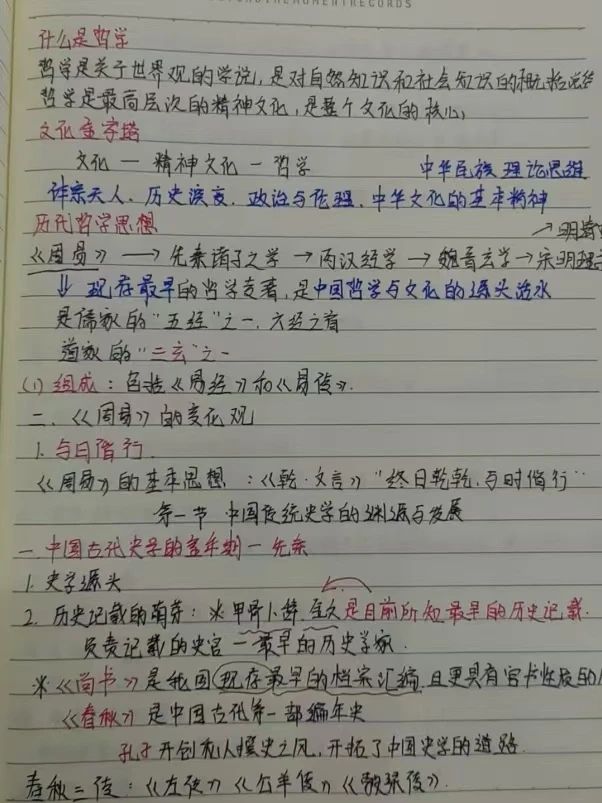 THEMOMENTRECORDS
什么是哲学
哲学是关于世界观的学说,是对自然知识和社会知识的概括总结
哲学是最高层次的精神文化,是整个文化的核心,
文化金字塔
文化 — 精神文化 — 哲学 中华民族 理论思维
究天人、历史演变、政治与伦理、中华文化的基本精神
历代哲学思想
《周易》 → 先秦诸子之学 → 两汉经学 → 魏晋玄学 → 宋明理学 → 明清
↓ 现存最早的哲学专著,是中国哲学与文化的源头活水
是儒家的“五经”之一,六经之首
道家的“三玄”之一
(1) 组成:包括《易经》和《易传》.
二、《周易》的变化观
1. 与日偕行.
《周易》的基本思想:《乾·文言》“终日乾乾,与时偕行”
第一节 中国传统史学的渊源与发展
一、中国古代史学的童年期 — 先秦
1. 史学源头
2. 历史记载的萌芽:※甲骨卜辞 是目前所知最早的历史记载.
负责记载的史官 — 最早的历史学家.
※《尚书》是我国现存最早的档案汇编,且更具有官书性质的
《春秋》是中国古代第一部编年史
孔子开创私人撰史之风,开拓了中国史学的道路.
春秋三传:《左传》《公羊传》《榖梁传》.